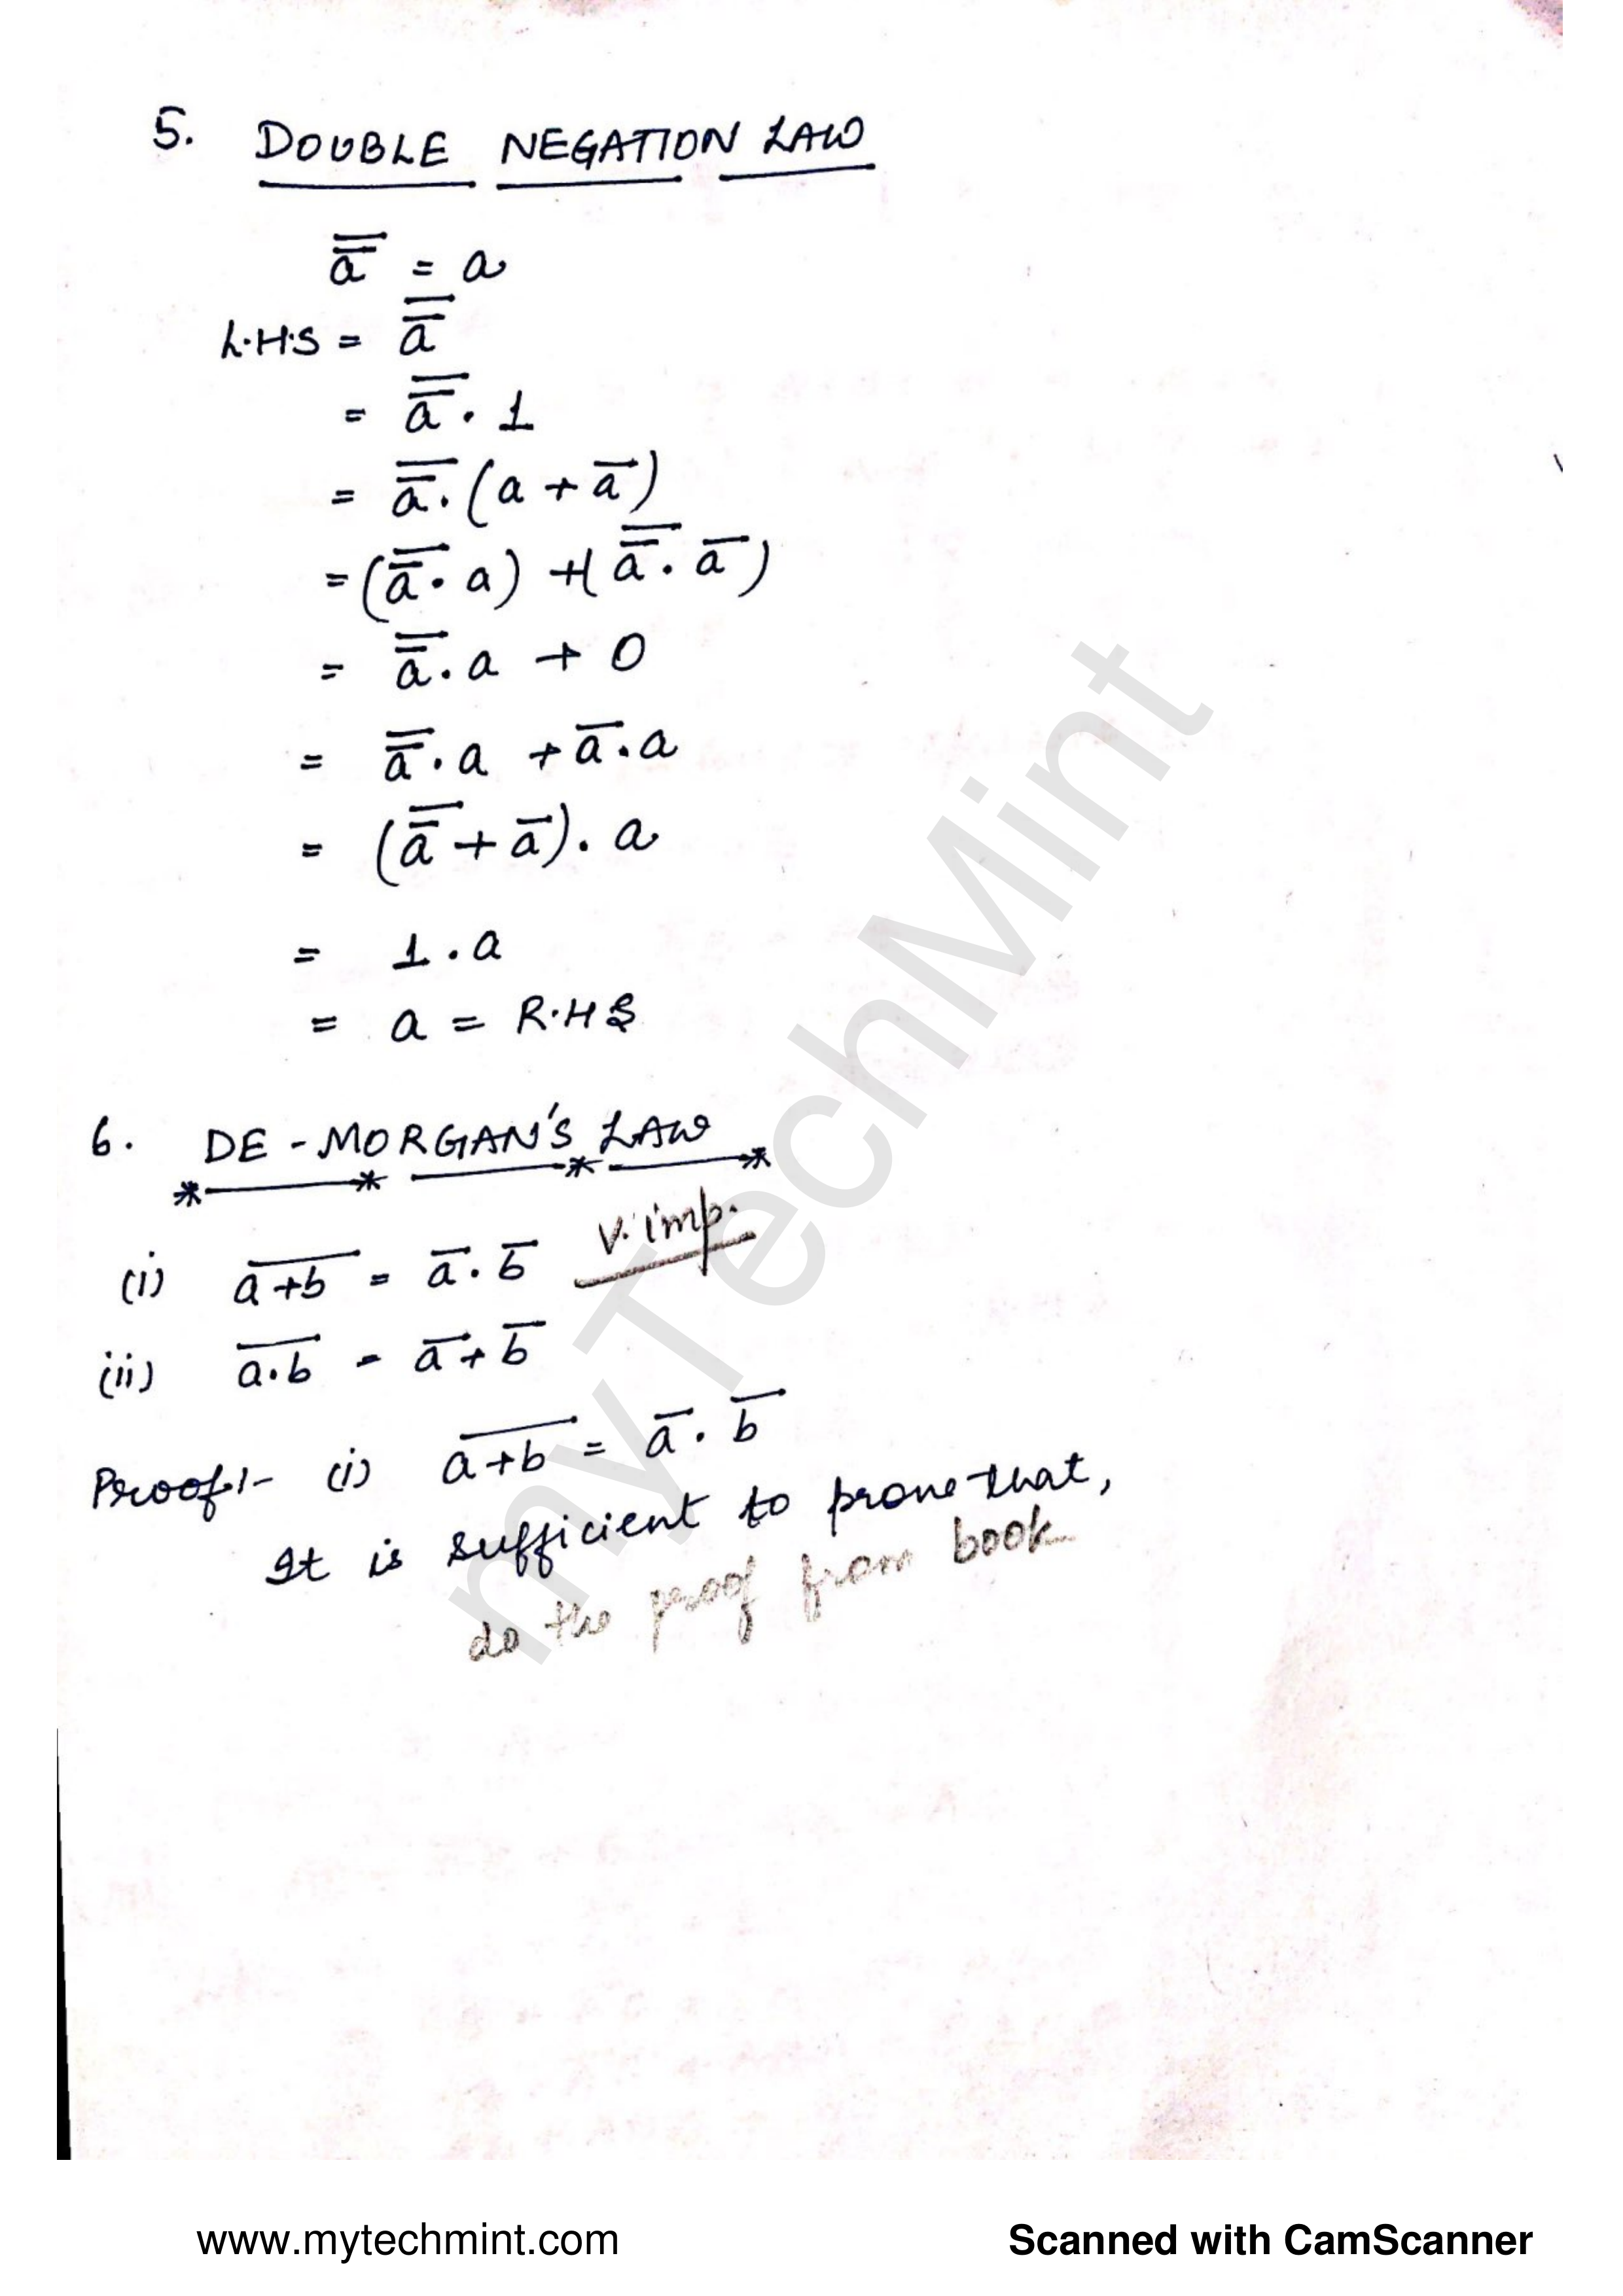 5. DOUBLE NEGATION LAW
a̿ = a
L.H.S = a̿
= a̿ . 1
= a̿ . (a + a̅)
= (a̿ . a) + (a̿ . a̅)
= a̿ . a + 0
= a̿ . a + a̅ . a
= (a̿ + a̅) . a
= 1 . a
= a = R.H.S
6. DE-MORGAN'S LAW
(i) a̅+̅b̅ = a̅ . b̅ V. imp.
(ii) a̅.̅b̅ = a̅ + b̅
Proof:- (i) a̅+̅b̅ = a̅ . b̅
It is sufficient to prove that,
do the proof from book
myTechMint
www.mytechmint.com Scanned with CamScanner